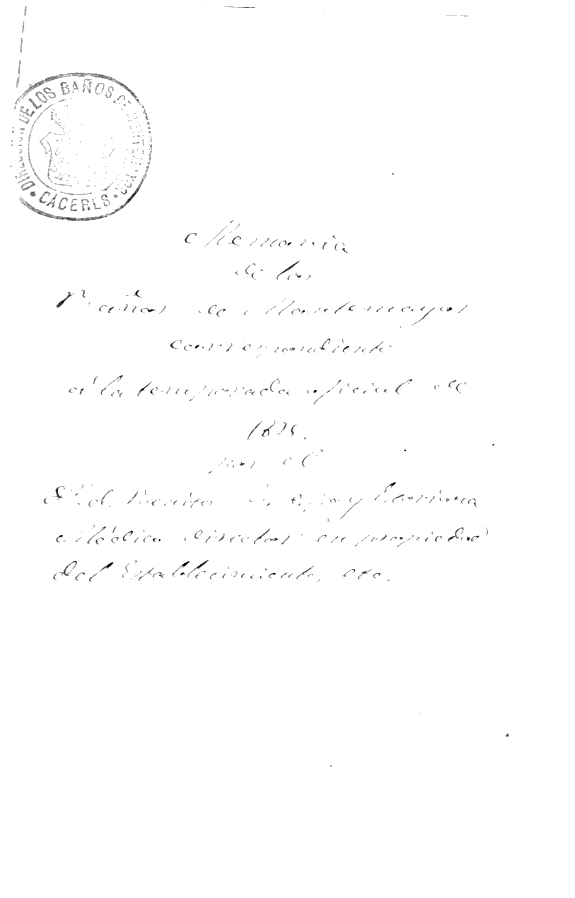 DIRECCION DE LOS BAÑOS DE MONTEMAYOR
* CÁCERES *
Memoria
de los
Baños de Montemayor
correspondiente
á la temporada oficial de
por el
Médico director en propiedad
del Establecimiento, etc.